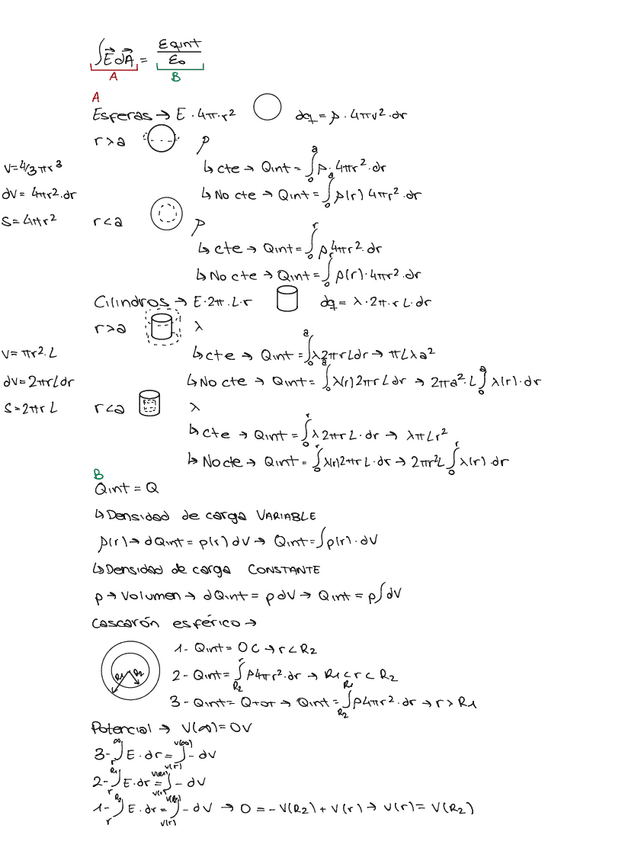 ∫E⃗ dA⃗ = Σqint/ε₀
A B
A
Esferas → E · 4π · r² dq = ρ · 4πr² · dr
r>a ρ
V = 4/3 πr³ ↳ cte → Qint = ∫₀ᵃ ρ · 4πr² · dr
dV = 4πr² · dr ↳ No cte → Qint = ∫₀ᵃ ρ(r) 4πr² · dr
S = 4πr² r<a ρ
↳ cte → Qint = ∫₀ʳ ρ 4πr² · dr
↳ No cte → Qint = ∫₀ʳ ρ(r) · 4πr² · dr
Cilindros → E · 2π · L · r dq = λ · 2π · r L · dr
r>a λ
V = πr² · L ↳ cte → Qint = ∫₀ᵃ λ2πrLdr → πLλa²
dV = 2πrLdr ↳ No cte → Qint = ∫₀ᵃ λ(r) 2πrL dr → 2πa² · L ∫₀ᵃ λ(r) · dr
S = 2πrL r<a λ
↳ cte → Qint = ∫₀ʳ λ2πrL · dr → λπLr²
↳ No cte → Qint = ∫₀ʳ λ(r)2πrL · dr → 2πr²L ∫₀ʳ λ(r) dr
B
Qint = Q
↳ Densidad de carga VARIABLE
ρ(r) → dQint = ρ(r) dV → Qint = ∫ρ(r) · dV
↳ Densidad de carga CONSTANTE
ρ → Volumen → dQint = ρ dV → Qint = ρ∫dV
Cascarón esférico →
1- Qint = 0 C → r < R2
R1 R2 2- Qint = ∫ ρ4πr² · dr → R1 < r < R2
R2
3- Qint = QTOT → Qint = ∫_R2^R1 ρ4πr² · dr → r > R1
Potencial → V(∞) = 0V
3- ∫_r^∞ E · dr = ∫_V(r)^V(∞) - dV
2- ∫_r^R1 E · dr = ∫_V(r)^V(R1) - dV
1- ∫_r^R2 E · dr = ∫_V(r)^V(R2) - dV → 0 = -V(R2) + V(r) → V(r) = V(R2)